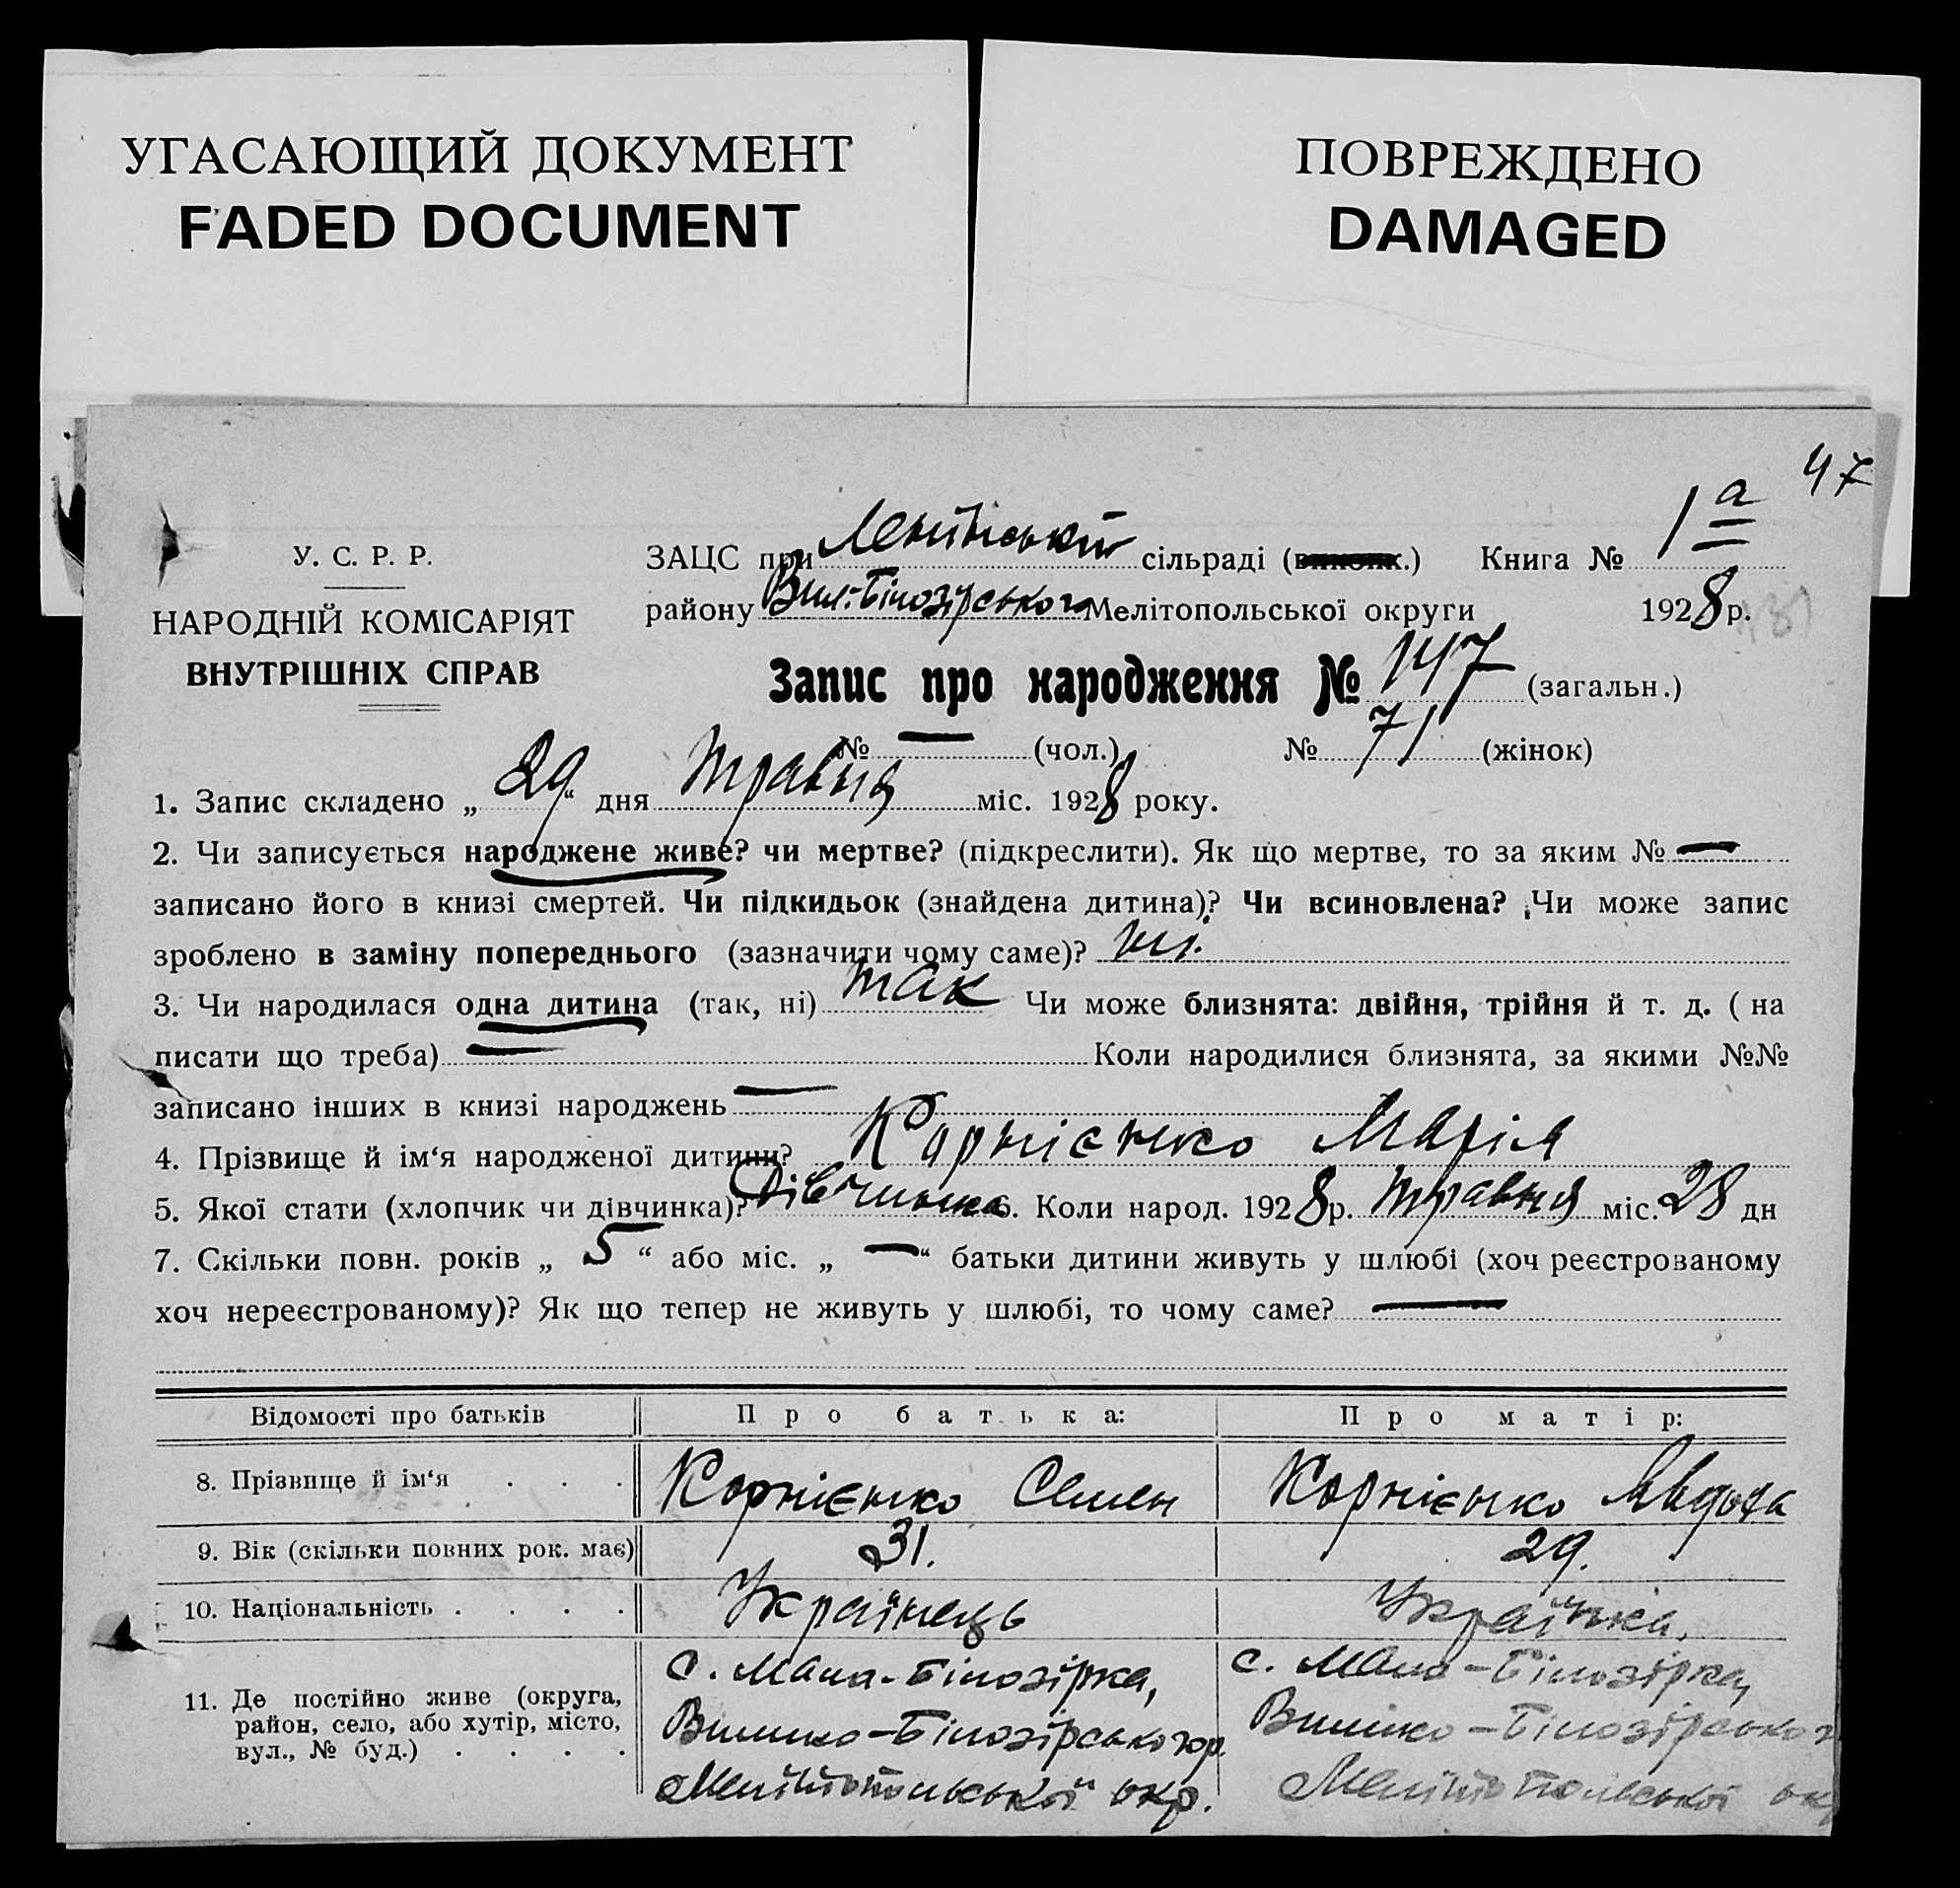 УГАСАЮЩИЙ ДОКУМЕНТ
FADED DOCUMENT
ПОВРЕЖДЕНО
DAMAGED
47
У. С. Р. Р.
НАРОДНІЙ КОМІСАРІЯТ
ВНУТРІШНІХ СПРАВ
ЗАЦС при Ленінській сільраді (виконк.) Книга № 1 а
району Вел.-Білозірського Мелітопольської округи 1928 р.
Запис про народження № 147 (загальн.)
№ — (чол.) № 71 (жінок)
1. Запис складено „29“ дня травня міс. 1928 року.
2. Чи записується народжене живе? чи мертве? (підкреслити). Як що мертве, то за яким № —
записано його в книзі смертей. Чи підкидьок (знайдена дитина)? Чи всиновлена? Чи може запис
зроблено в заміну попереднього (зазначити чому саме)? ні.
3. Чи народилася одна дитина (так, ні) так Чи може близнята: двійня, трійня й т. д. ( на
писати що треба) — Коли народилися близнята, за якими №№
записано інших в книзі народжень —
4. Прізвище й ім‘я народженої дитини? Корнієнко Марія
5. Якої стати (хлопчик чи дівчинка)? Дівчинка 6. Коли народ. 1928 р. травня міс. 28 дн
7. Скільки повн. років „5“ або міс. „—“ батьки дитини живуть у шлюбі (хоч реєстрованому
хоч нереєстрованому)? Як що тепер не живуть у шлюбі, то чому саме? —
Відомості про батьків Про батька: Про матір:
8. Прізвище й ім‘я . . . Корнієнко Семен Корнієнко Явдоха
9. Вік (скільки повних рок. має) 31. 29.
10. Національність . . . . Українець Українка.
11. Де постійно живе (округа,
район, село, або хутір, місто,
вул., № буд.) . . . .
с. Мала-Білозірка,
Велико-Білозірського р.
Мелітопольської окр.
с. Мала-Білозірка,
Велико-Білозірського
Мелітопольської окр